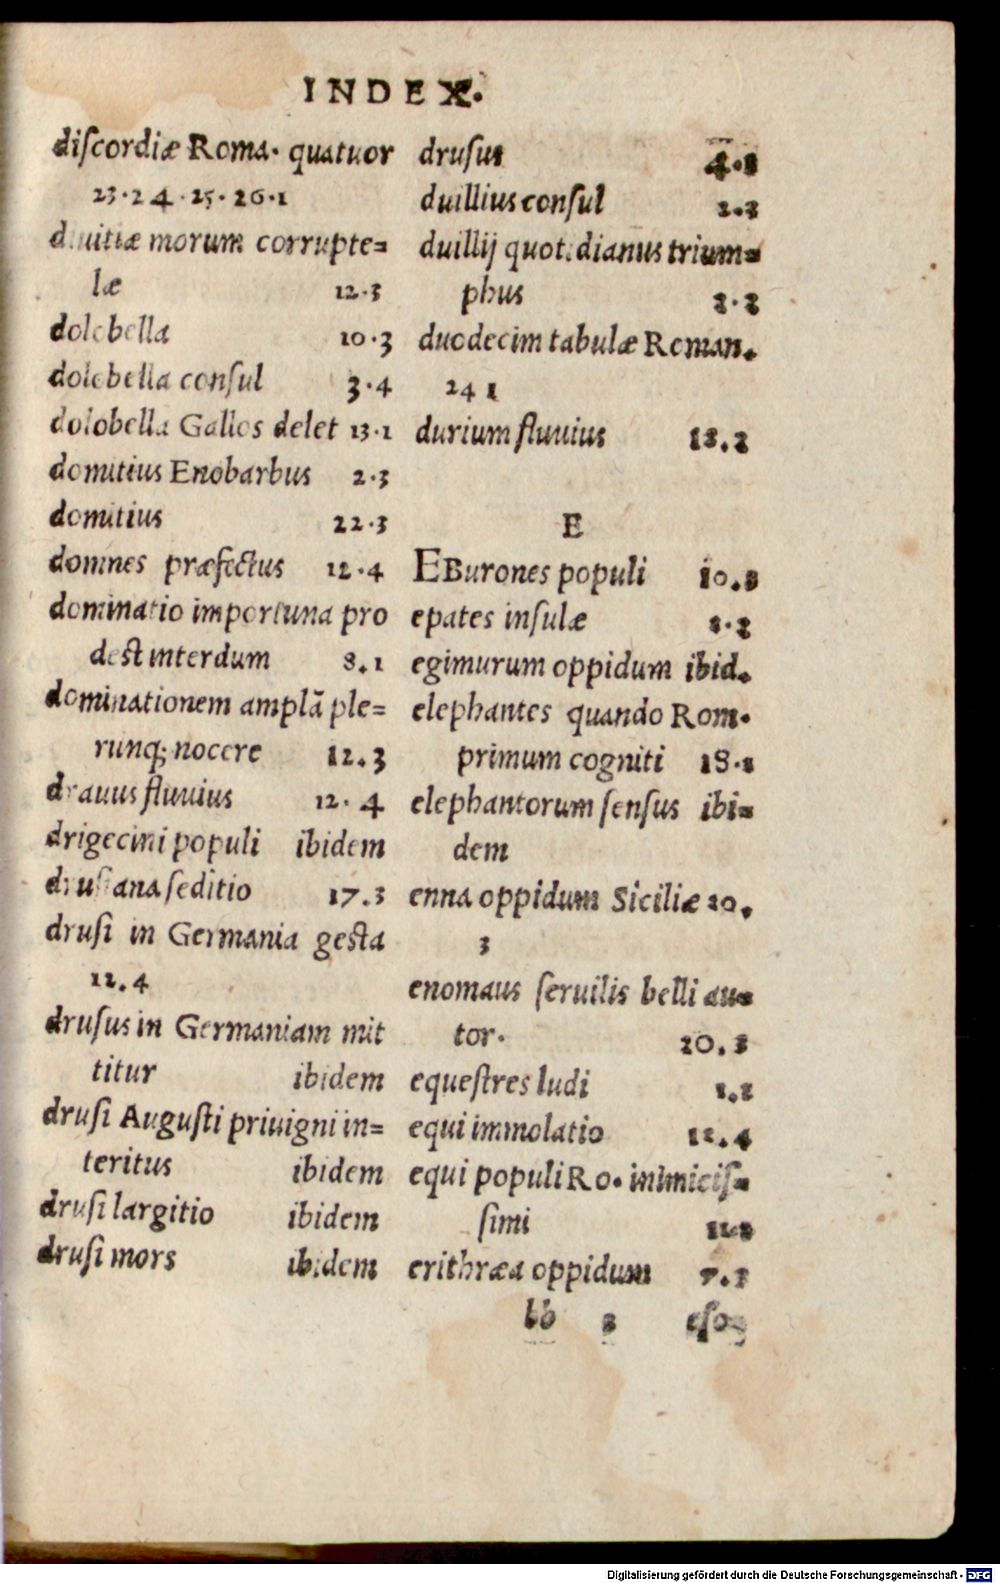 INDEX.
diſcordiæ Roma. quatuor
23.24.25.26.1
diuitiæ morum corrupte=
læ 12.3
dolobella 10.3
dolobella conſul 3.4
dolobella Gallos delet 13.1
domitius Enobarbus 2.3
domitius 22.3
domnes præfectus 12.4
dominatio importuna pro
deſt interdum 8.1
dominationem amplā ple=
runq; nocere 12.3
drauus fluuius 12.4
drigecini populi ibidem
druſiana ſeditio 17.3
druſi in Germania geſta
12.4
druſus in Germaniam mit
titur ibidem
druſi Auguſti priuigni in=
teritus ibidem
druſi largitio ibidem
druſi mors ibidem
druſus
duillius conſul 2.2
duillij quotidianus trium=
phus 2.2
duodecim tabulæ Roman.
24 1
durium fluuius 18.2
E
EBurones populi
epates inſulæ
egimurum oppidum ibid.
elephantes quando Rom.
primum cogniti 18.1
elephantorum ſenſus ibi=
dem
enna oppidum Siciliæ 20.
3
enomaus ſeruilis belli au=
tor. 20.3
equeſtres ludi
equi immolatio 12.4
equi populi Ro. inimiciſ=
ſimi
erithræa oppidum 7.3
bb 2